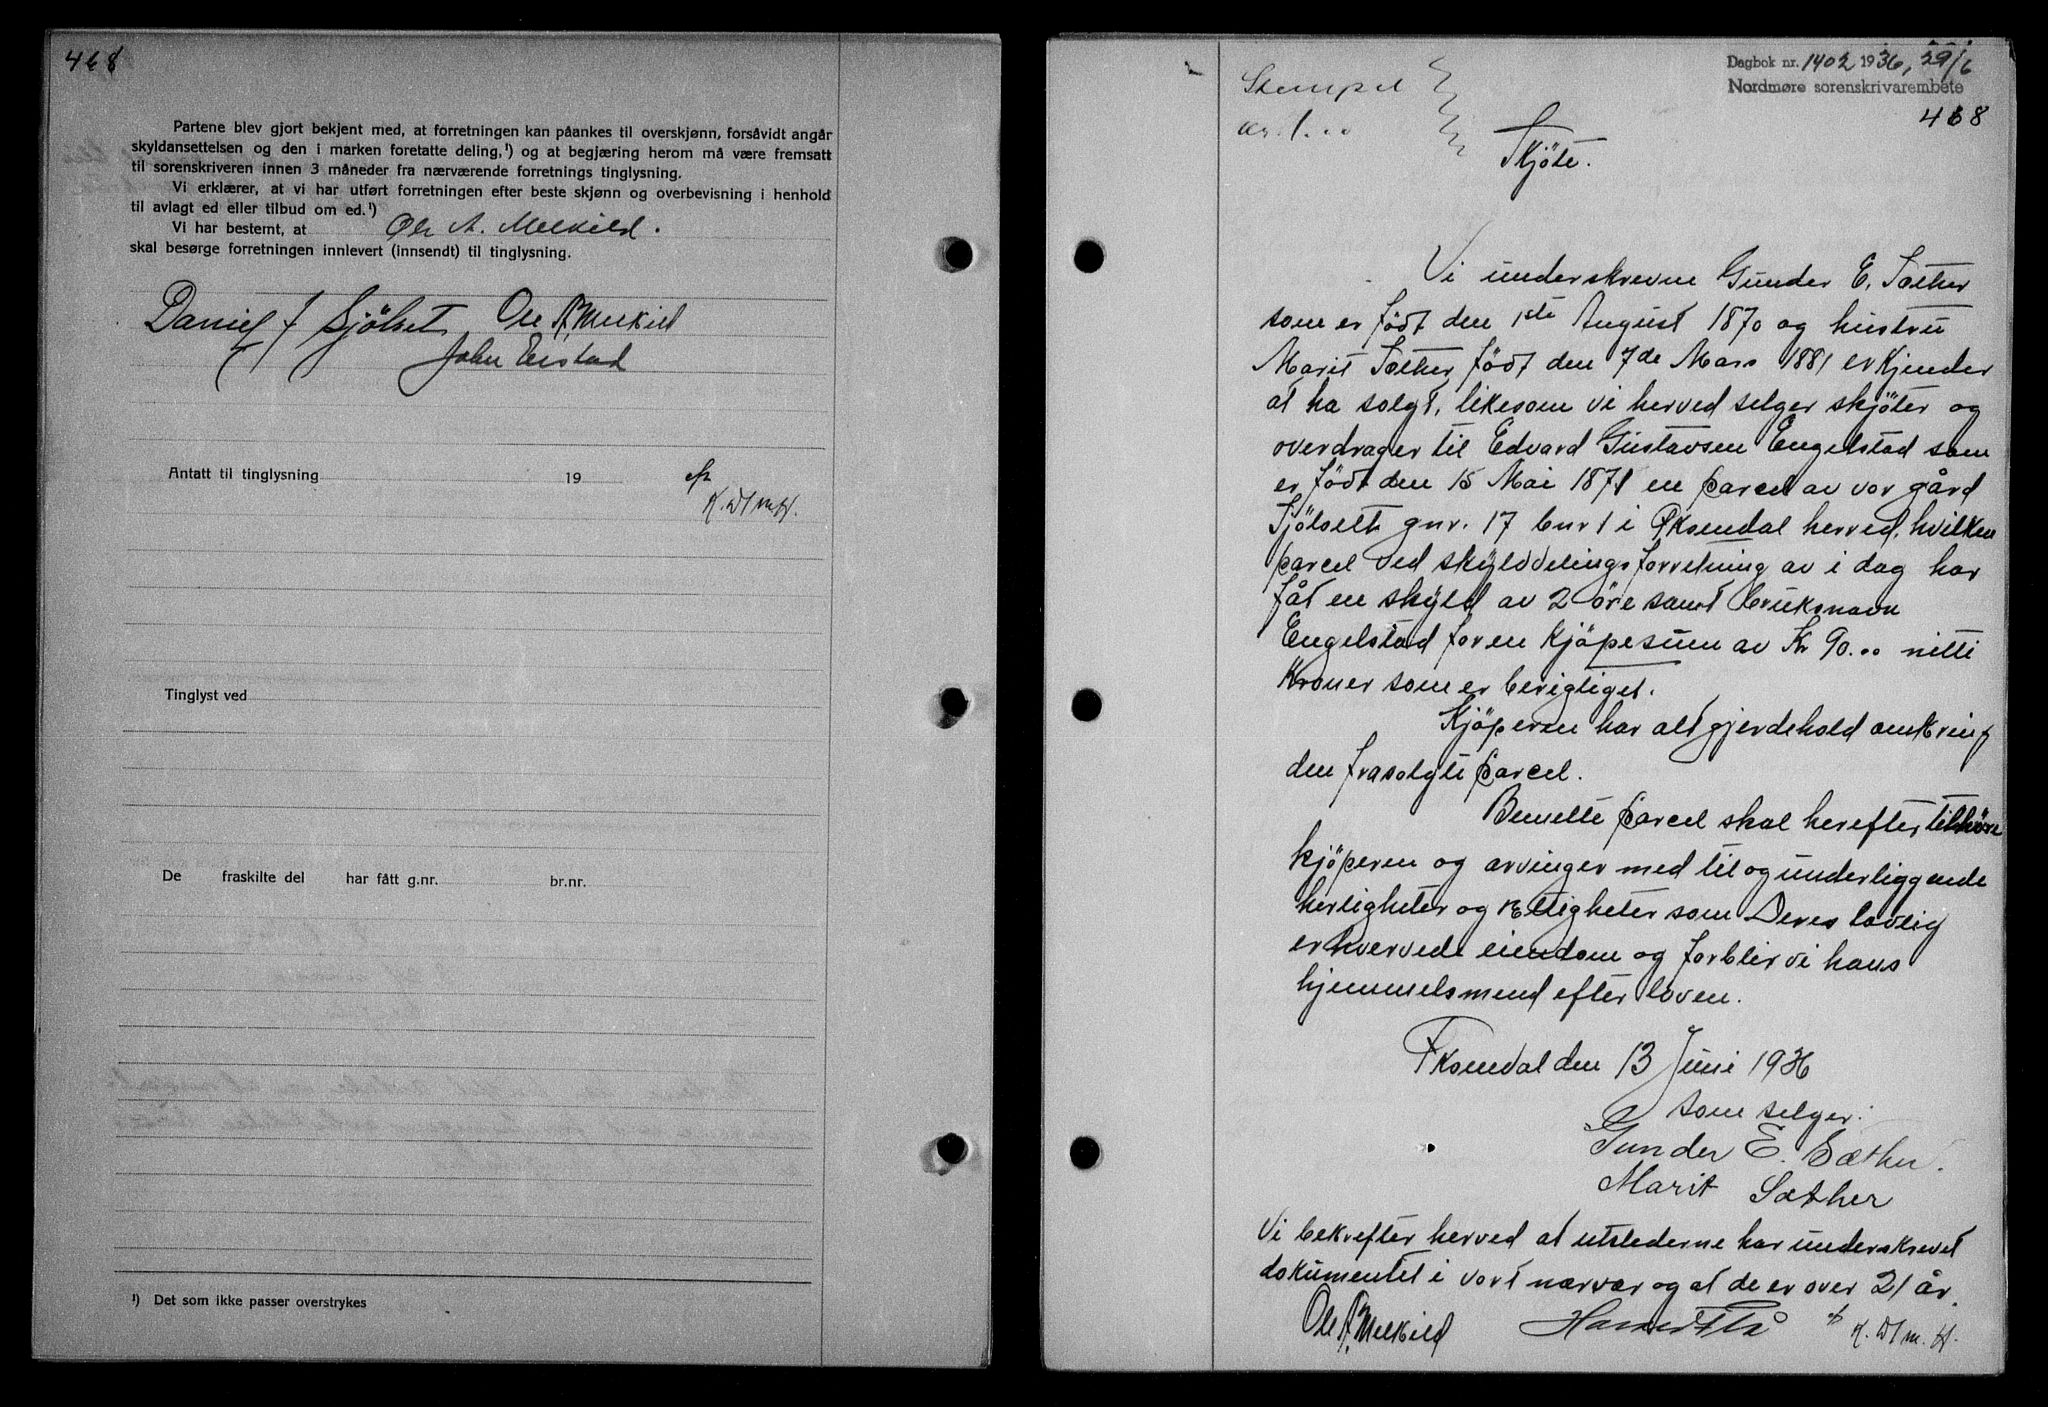 468
Partene blev gjort bekjent med, at forretningen kan påankes til overskjønn, forsåvidt angår
skyldansettelsen og den i marken foretatte deling,¹) og at begjæring herom må være fremsatt
til sorenskriveren innen 3 måneder fra nærværende forretnings tinglysning.
Vi erklærer, at vi har utført forretningen efter beste skjønn og overbevisning i henhold
til avlagt ed eller tilbud om ed.¹)
Vi har bestemt, at Ole A. Melkild.
skal besørge forretningen innlevert (innsendt) til tinglysning.
Daniel J Sjölset Ole A. Melkild
John
Antatt til tinglysning 19
Tinglyst ved
De fraskilte del har fått g.nr. br.nr.
¹) Det som ikke passer overstrykes
Dagbok nr. 1402 1936, 29/6
Nordmøre sorenskrivarembete
468
Stempel
kr. 1.00
Skjöte.
Vi underskrevne Gunder E. Sæther
som er født den 1ste August 1870 og hustru
Marit Sæther født den 7de Mars 1881 erkjender
at ha solgt, likesom vi herved selger skjöter og
overdrager til Edvard Gustavsen Engelstad som
er født den 15 Mai 1871 en parcel av vor gård
Sjölsett gnr. 17 bnr 1 i Øksendal herred, hvilken
parcel ved skylddelingsforretning av i dag har
fåt en skyld av 2 öre samt bruksnavn
Engelstad for en kjöpesum av Kr 90.00 nitti
Kroner som er berigtiget.
Kjöperen har alt gjerdehold omkring
den frasolgte parcel.
Bemelte parcel skal herefter tilhöre
kjöperen og arvinger med til og underliggende
herligheter og rettigheter som Deres lovlig
erhvervede eiendom og forblir vi hans
hjemmelsmend efter loven.
Øksendal den 13 Juni 1936
som selger:
Gunder E. Sæther.
Marit Sæther
Vi bekrefter herved at utstederne har underskrevet
dokumentet i vort nærvær og at de er over 21 år.
Ole A. Melkild